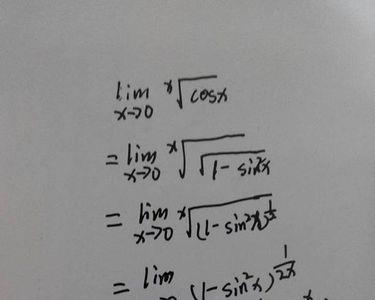 lim x→0 ˣ√cosx
= lim x→0 ˣ√√1-sin²x
= lim x→0 ˣ√(1-sin²x)^½
= lim (1-sin²x)^(1/2x)